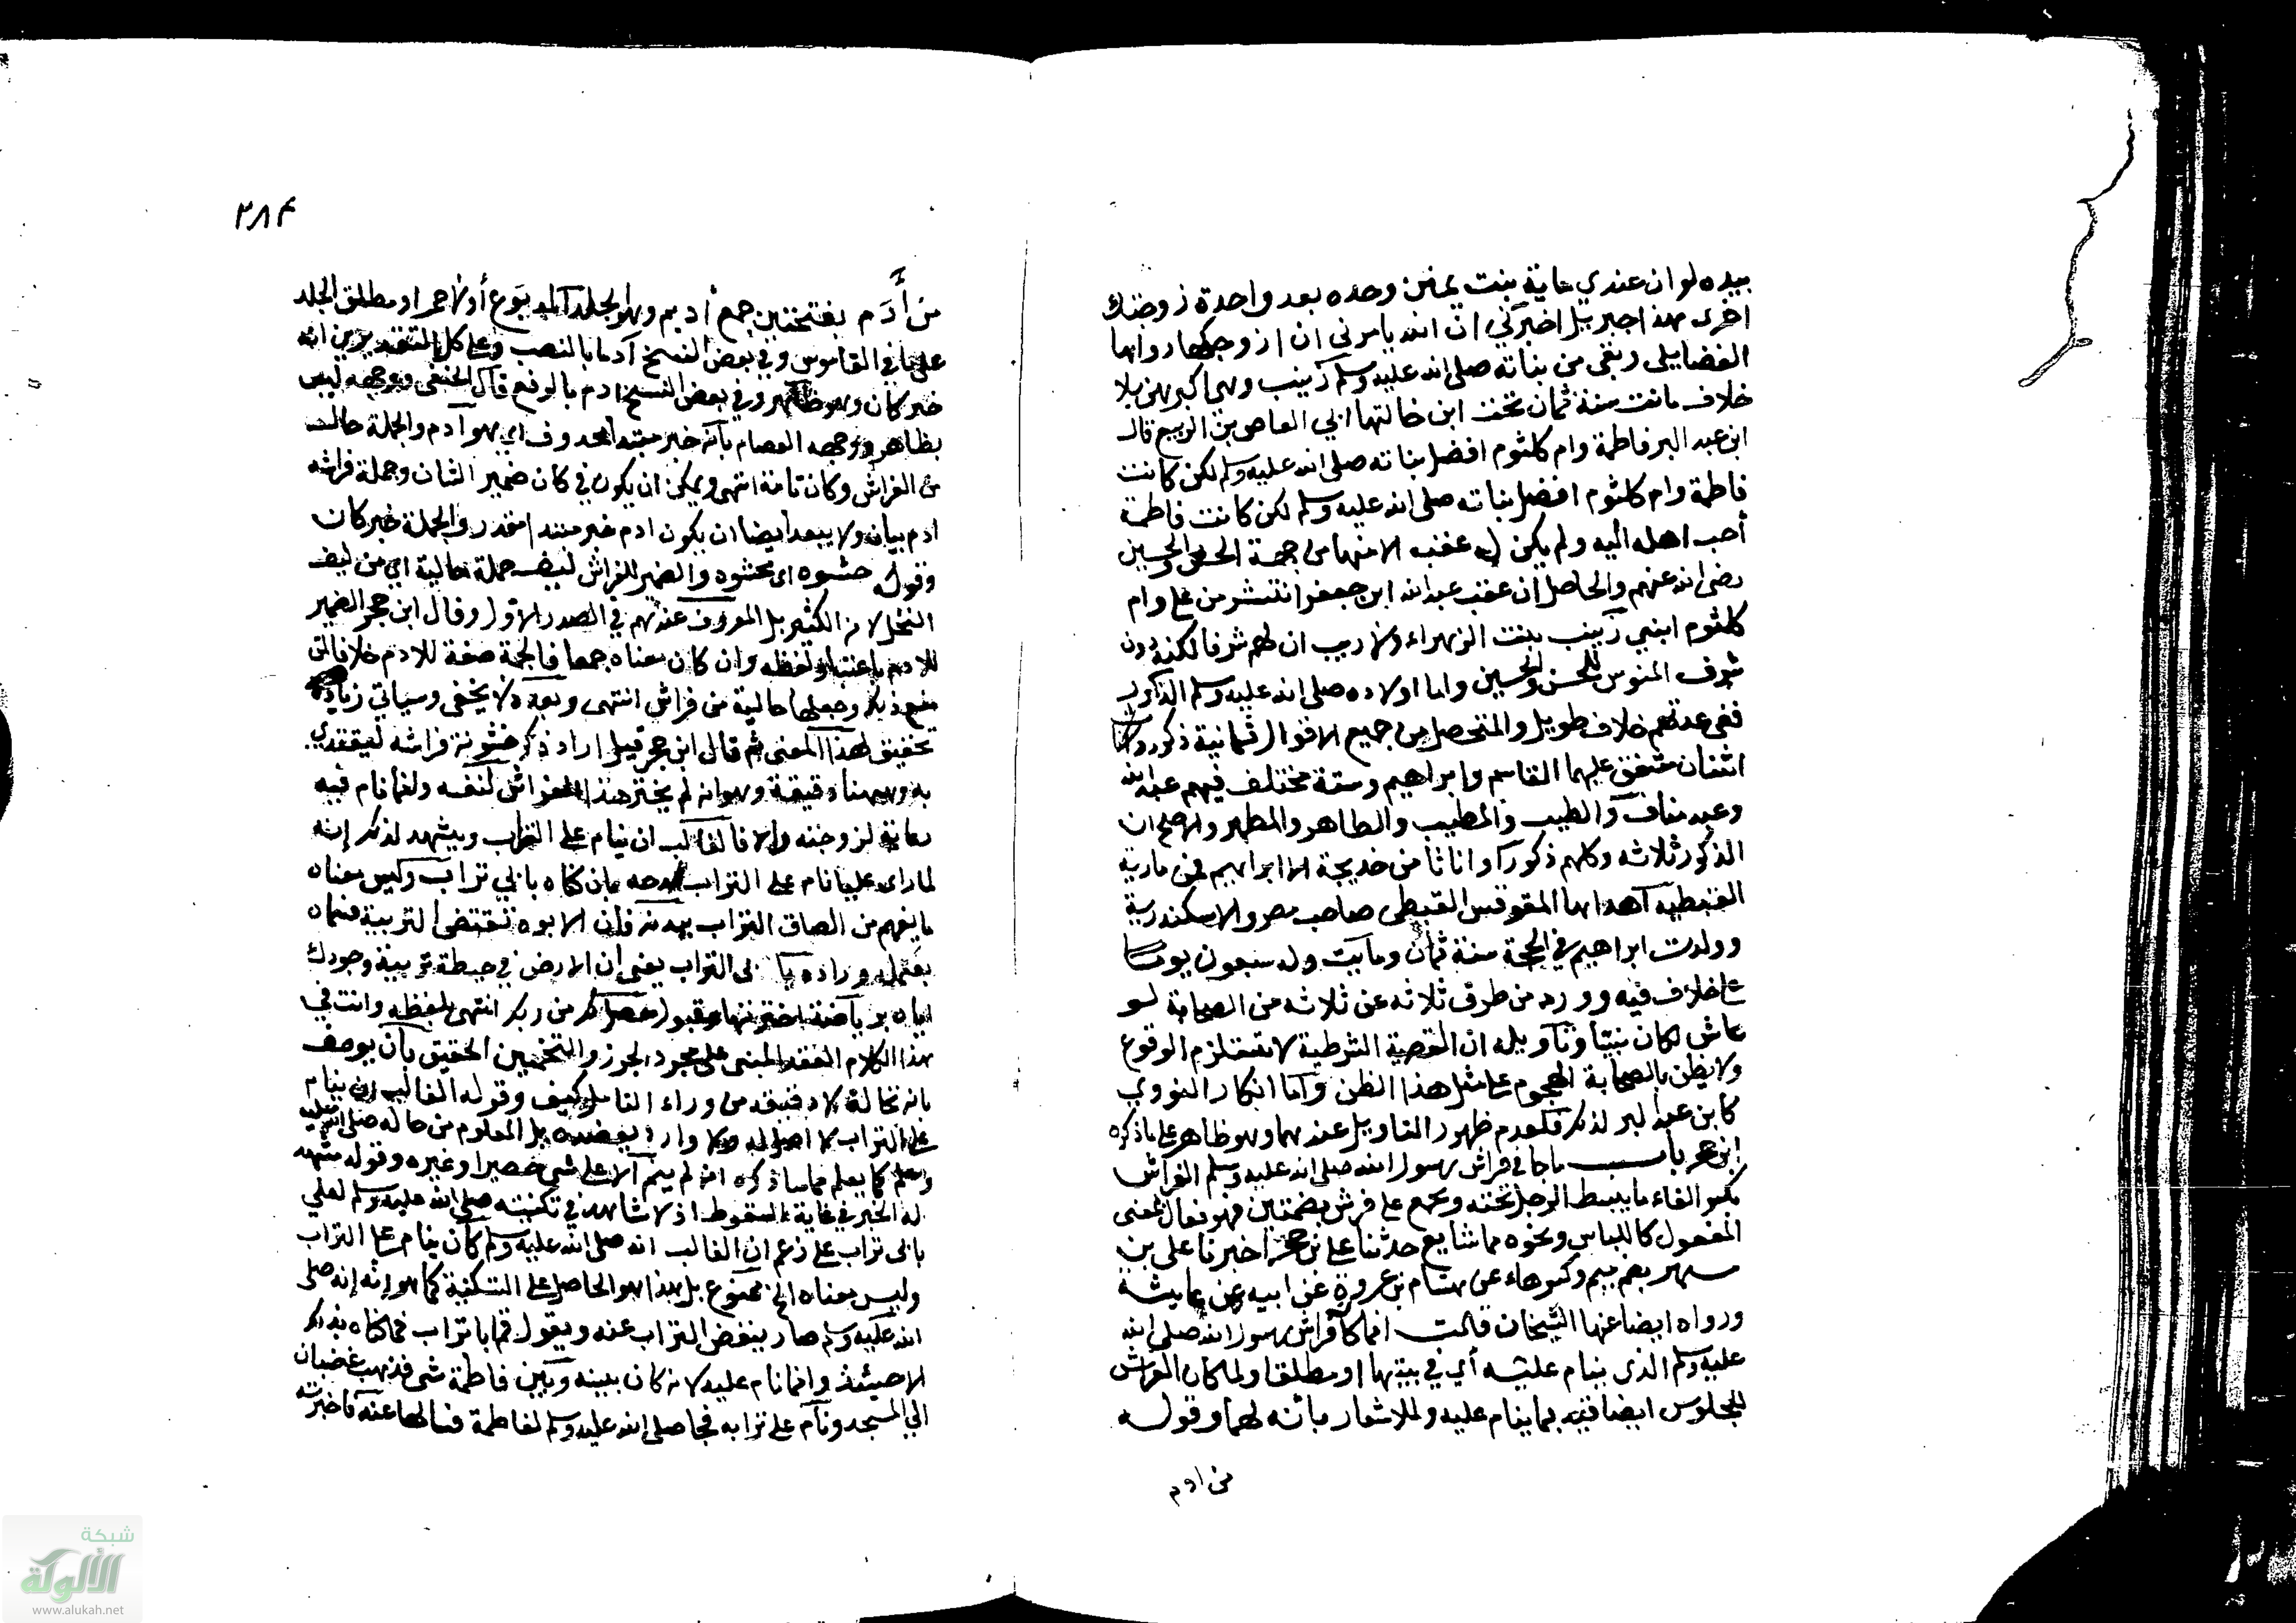 بيده لو ان عندي مائة بنت يمتن وحده بعد واحدة زوجتك
اخرى هذا جبريل اخبرني ان الله يأمرني ان ازوجكها رواهما
الفضايلي وبقي من بناته صلى الله عليه وسلم زينب وهي اكبرهن بلا
خلاف ماتت سنة ثمان تحت ابن خالتها ابي العاص بن الربيع قال
ابن عبد البر فاطمة وام كلثوم افضل بناته صلى الله عليه وسلم لكن كانت
فاطمة وام كلثوم افضل بناته صلى الله عليه وسلم لكن كانت فاطمة
أحب اهله اليه ولم يكن له عقب الا منها من جهة الحسن والحسين
رضى الله عنهم والحاصل ان عقب عبد الله ابن جعفر انتشر من علي وام
كلثوم ابني زينب بنت الزهراء ولا ريب ان لهم شرفا لكنه دون
شرف المنسوبين للحسن والحسين واما اولاده صلى الله عليه وسلم الذكور
ففي عدتهم خلاف طويل والمتحصل من جميع الاقوال ثمانية ذكور
اثنان متفق عليهما القاسم وابراهيم وستة مختلف فيهم عبد الله
وعبد مناف والطيب والمطيب والطاهر والمطهر والاصح ان
الذكور ثلاثه وكلهم ذكورا واناثا من خديجة الا ابراهيم فمن مارية
القبطية اهداها المقوقس القبطي صاحب مصر والاسكندرية
وولدت ابراهيم في الحجة سنة ثمان ومات وله سبعون يوما
على خلاف فيه وورد من طرق ثلاثه عن ثلاثه من الصحابة لو
عاش لكان نبيا وتأويله ان القضية الشرطية لا تستلزم الوقوع
ولا يظن بالصحابة الهجوم على مثل هذا الظن واما انكار النووي
كابن عبد البر لذلك فلعدم ظهور التاويل عندهما وهو ظاهر على ما ذكره
ابن حجر باب ما جا في فراش رسول الله صلى الله عليه وسلم الفراش
بكسر الفاء ما يبسط الرجل تحته ويجمع على فرش بضمتين فهو فعال بمعنى
المفعول كاللباس ونحوه مما شايع حدثنا علي بن حجر اخبرنا علي بن
مسهر بضم ميم وكسر هاء عن هشام بن عروة عن ابيه عن عايشة
ورواه ايضا عنها الشيخان قالت انما كان فراش رسول الله صلى الله
عليه وسلم الذى ينام عليه أي في بيتها او مطلقا ولما كان الفراش
للجلوس ايضا قيد بما ينام عليه وللاشعار بانه لهما وقوله
من ادم
٣٨٤
من أدم بفتحتين جمع أديم وهو الجلد المدبوغ أو الاحمر او مطلق الجلد
على ما في القاموس وفي بعض النسخ أدما بالنصب وعلى كل التقديرين انه
خبر كان وهو ظاهر وفي بعض النسخ ادم بالرفع قال الحنفي وتوجيهه ليس
بظاهر ووجهه العصام بأنه خبر مبتدا محذوف اي هو أدم والجملة حال
من الفراش وكان تامة انتهى ويمكن ان يكون في كان ضمير الشان وجملة فراشه
ادم بيان ولا يبعد ايضا ان يكون ادم خبر مبتدا مقدر والجملة خبر كان
وقوله حشوه اى محشوه والضمير للفراش ليف جملة حالية اي من ليف
النخل لانه الكثير بل المعروف عندهم في الصدر الاول وقال ابن حجر الضمير
للادم باعتبار لفظه وان كان معناه جمعا فالجملة صفة للادم خلافا لمن
منع ذلك وجعلها حالية من فراش انتهى وبعده لا يخفى وسياتي زيادة
تحقيق لهذا المعنى ثم قال ابن حجر قيل اراد ذكر خشونة فراشه ليقتدى
به وههنا دقيقة وهو انه لم يختر هذا الفراش لنفسه وانما نام فيه
رعاية لزوجته والا فالغالب ان ينام على التراب ويشهد لذلك انه
لما راى عليا نام على التراب مدحه بان كناه بابي تراب وليس معناه
ما يفهم من الصاق التراب ببدنه فان الابوه تقتضى التربية فمعناه
التراب يعنى ان الارض في حيطة تربية وجودك
من ربك انتهى بلفظه وانت في
هذا الكلام المبنى على مجرد الحرز والتخمين الحقيق بأن يوصف
بانه نخالة لا دقيقه من وراء التامل كيف وقوله الغالب ان ينام
على التراب لا اصل له ولا وارد يعضده بل المعلوم من حاله صلى الله عليه
وسلم كما يعلم مما ساذكره انه لم ينم الا على شي حصير او غيره وقوله يشهد
له الخبر في غاية السقوط اذ لا شاهد في تكنيته صلى الله عليه وسلم لعلي
بابى تراب على زعم ان الغالب انه صلى الله عليه وسلم كان ينام على التراب
وليس معناه الخ ممنوع بل هذا هو الحاصل على التكنية كما هو انه صلى
الله عليه وسلم صار ينفض التراب عنه ويقول قم ابا تراب فما كناه بذلك
الا حينئذ وانما نام عليه لانه كان بينه وبين فاطمة شى فذهب غضبان
الي المسجد ونام على ترابه فجا صلى الله عليه وسلم لفاطمة فسالها عنه فاخبرته
شبكة
الألوكة
www.alukah.net